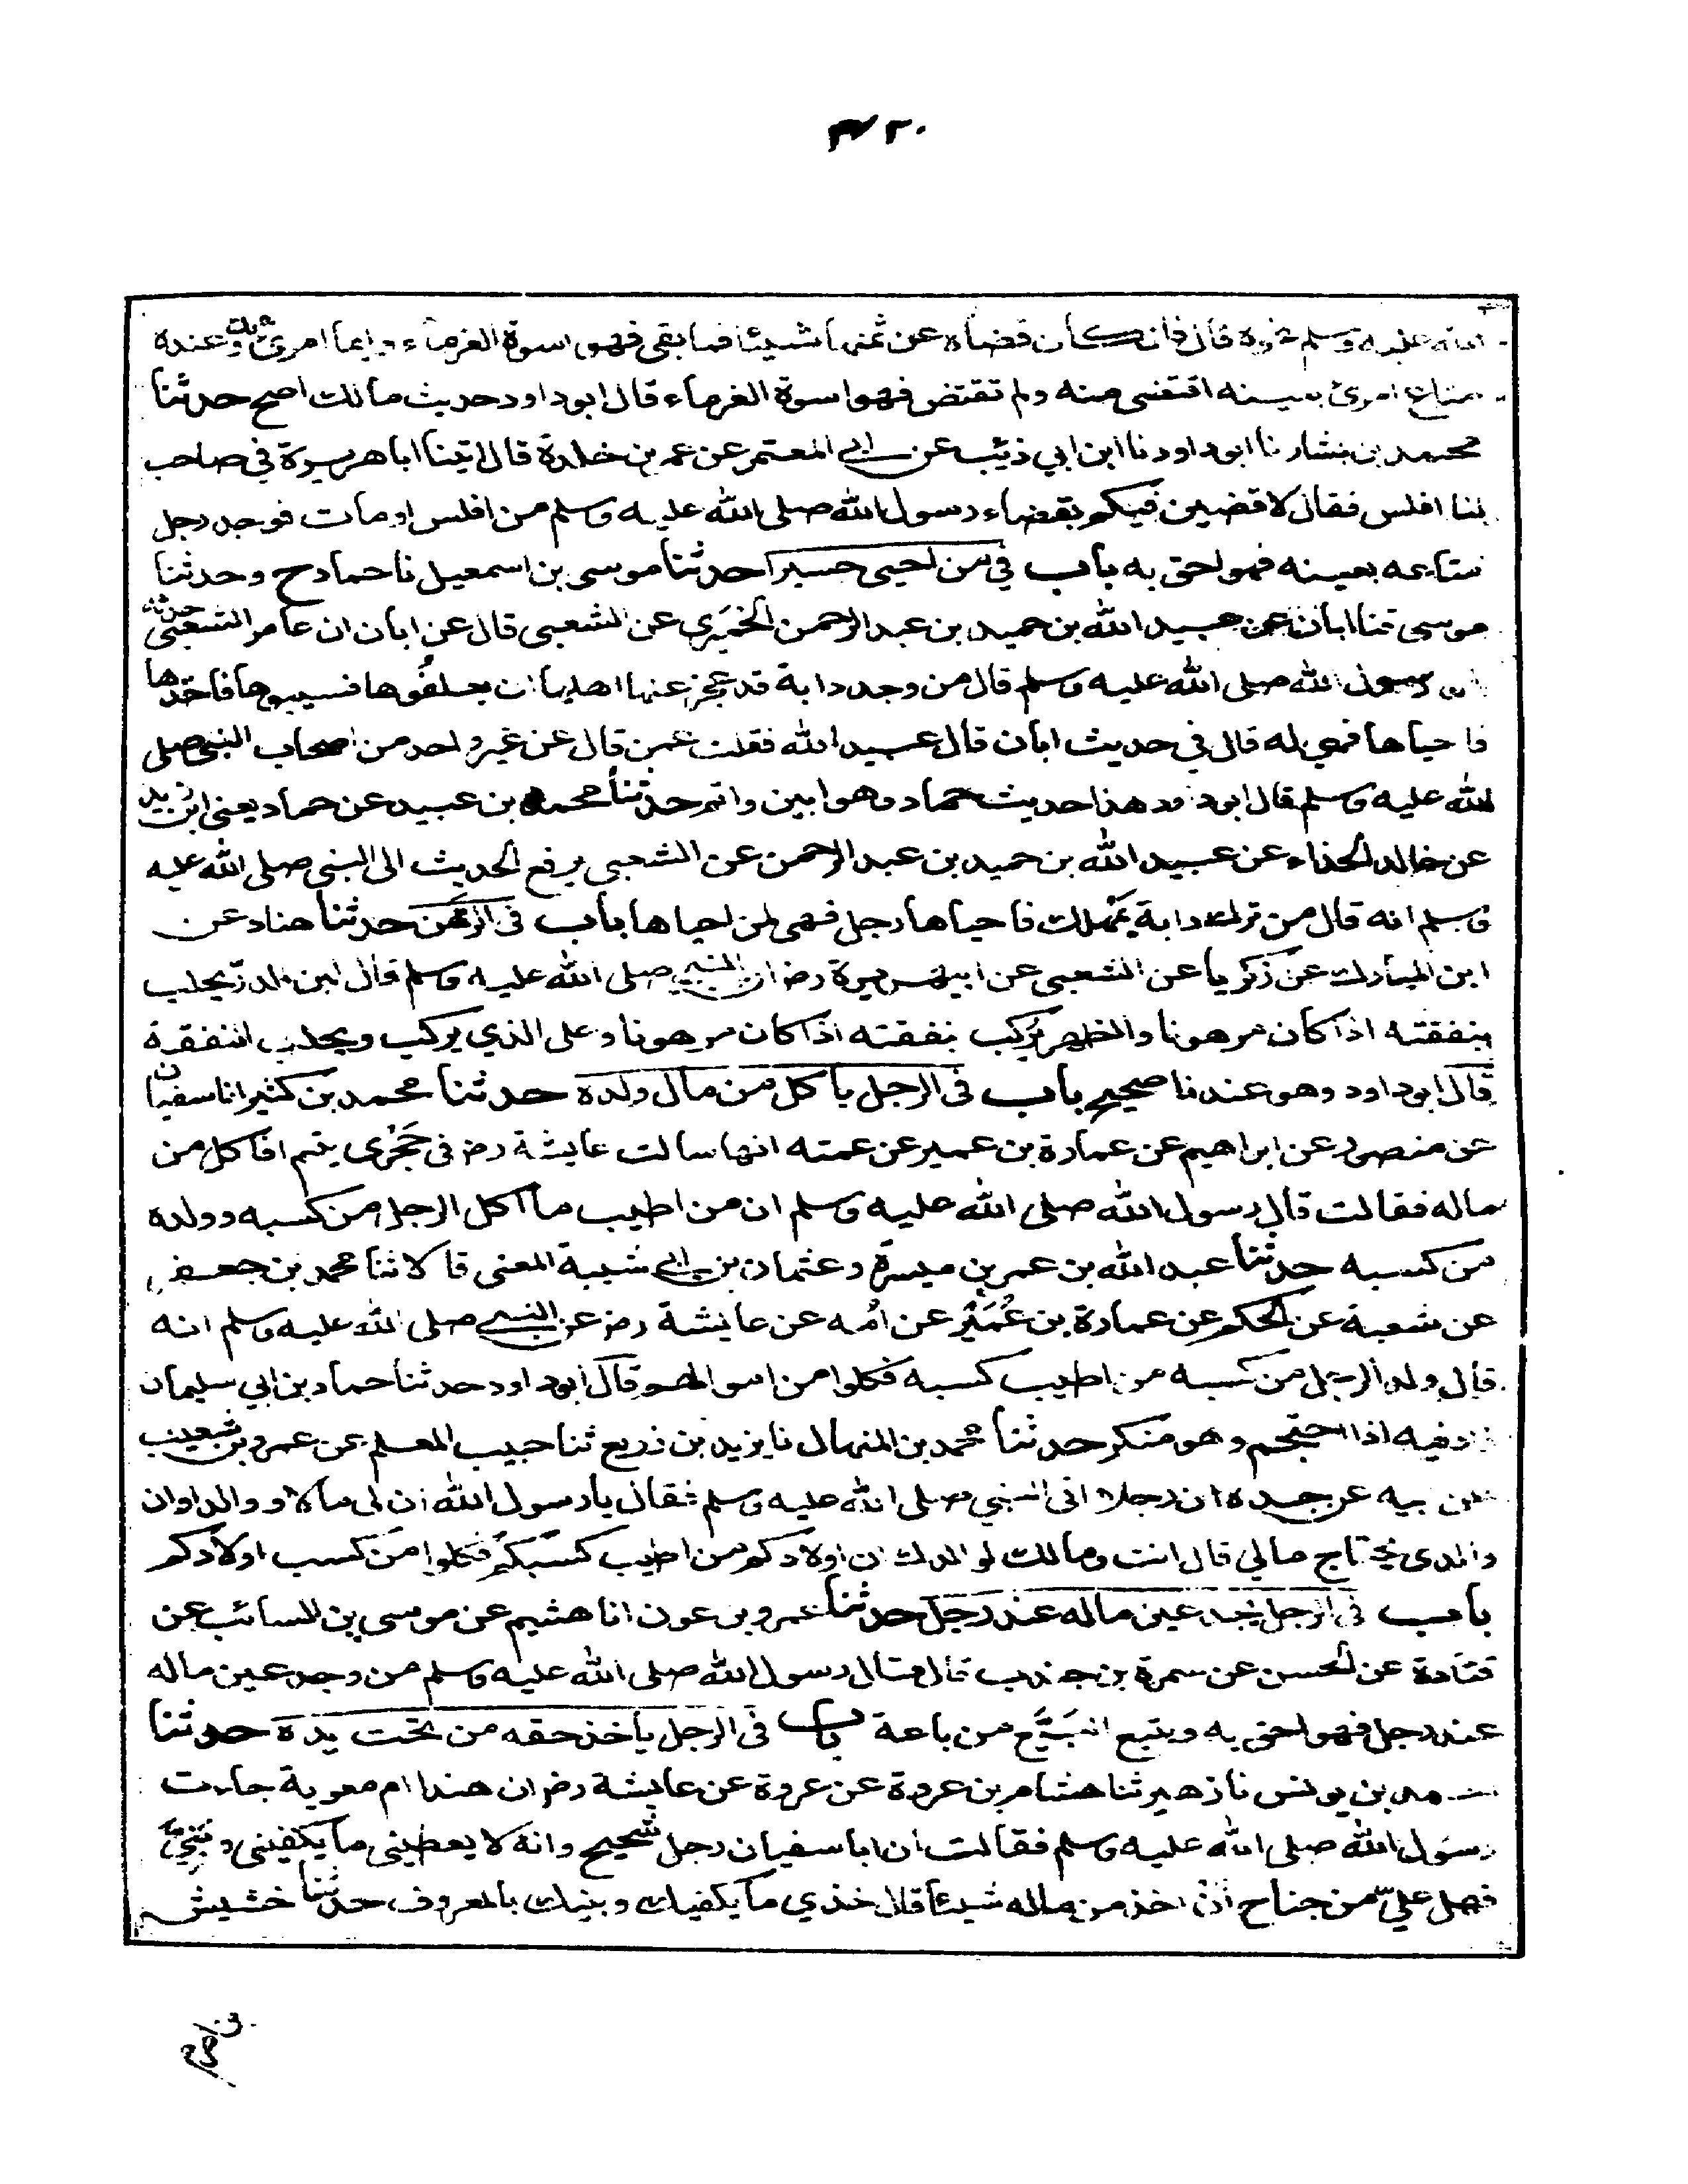 ٣٢٠
الله عليه وسلم نحوه قال فان كان قضاه عن ثمنها شيئا فما بقى فهو اسوة الغرماء وايما امرئ هلك وعنده
متاع امرئ بعينه اقتضى منه ولم تقتض فهو اسوة الغرماء قال ابوداود حديث مالك اصح حدثنا
محمد بن بشار نا ابوداود نا ابن ابي ذئب عن ابي المعتمر عن عمر بن خلدة قال اتينا ابا هريرة في صاحب
لنا افلس فقال لاقضين فيكم بقضاء رسول الله صلى الله عليه وسلم من افلس او مات فوجد رجل
متاعه بعينه فهو احق به باب في من احيى حسيرا حدثنا موسى بن اسمعيل نا حماد ح وحدثنا
موسى ثنا ابان عن عبيد الله بن حميد بن عبد الرحمن الحميري عن الشعبى قال عن ابان ان عامر الشعبى حدثه
ان رسول الله صلى الله عليه وسلم قال من وجد دابة قد عجز عنها اهلها ان يعلفوها فسيبوها فاخذها
فاحياها فهي له قال في حديث ابان قال عبيد الله فقلت عمن قال عن غير واحد من اصحاب النبي صلى
الله عليه وسلم قال ابوداود هذا حديث حماد وهو ابين واتم حدثنا محمد بن عبيد عن حماد يعنى ابن زيد
عن خالد الحذاء عن عبيد الله بن حميد بن عبد الرحمن عن الشعبى يرفع الحديث الى النبى صلى الله عليه
وسلم انه قال من ترك دابة بمهلك فاحياها رجل فهى لمن احياها باب فى الرهن حدثنا هناد عن
ابن المبارك عن زكريا عن الشعبى عن ابي هريرة رضـ ان النبي صلى الله عليه وسلم قال لبن الدر يحلب
بنفقته اذا كان مرهونا والظهر يركب بنفقته اذا كان مرهونا وعلى الذي يركب ويحلب النفقة
قال ابوداود وهو عندنا صحيح باب فى الرجل ياكل من مال ولده حدثنا محمد بن كثير انا سفيان
عن منصور عن ابراهيم عن عمارة بن عمير عن عمته انها سالت عايشة رضـ فى حجرى يتيم افاكل من
ماله فقالت قال رسول الله صلى الله عليه وسلم ان من اطيب ما اكل الرجل من كسبه وولده
من كسبه حدثنا عبد الله بن عمر بن ميسرة وعثمان بن ابي شيبة المعنى قالا ثنا محمد بن جعفر
عن شعبة عن الحكم عن عمارة بن عمير عن امه عن عايشة رضـ عن النبي صلى الله عليه وسلم انه
قال ولد الرجل من كسبه من اطيب كسبه فكلوا من اموالهم قال ابوداود حدثنا حماد بن ابي سليمان
زاد فيه اذا احتجتم وهو منكر حدثنا محمد بن المنهال نا يزيد بن زريع ثنا حبيب المعلم عن عمرو بن شعيب
عن ابيه عن جده ان رجلا اتى النبي صلى الله عليه وسلم فقال يا رسول الله ان لى مالا و والدا وان
والدى يحتاج مالي قال انت ومالك لوالدك ان اولادكم من اطيب كسبكم فكلوا من كسب اولادكم
باب فى الرجل يجد عين ماله عند رجل حدثنا عمرو بن عون انا هشيم عن موسى بن السائب عن
قتادة عن الحسن عن سمرة بن جندب قال قال رسول الله صلى الله عليه وسلم من وجد عين ماله
عند رجل فهو احق به ويتبع البيع من باعه باب فى الرجل ياخذ حقه من تحت يده حدثنا
احمد بن يونس نا زهير ثنا هشام بن عروة عن عروة عن عايشة رضـ ان هندا ام معوية جاءت
رسول الله صلى الله عليه وسلم فقالت ان ابا سفيان رجل شحيح وانه لا يعطينى ما يكفينى وبني
فهل علي من جناح ان اخذ من ماله شيئا قال خذي ما يكفيك وبنيك بالمعروف حدثنا خشيش